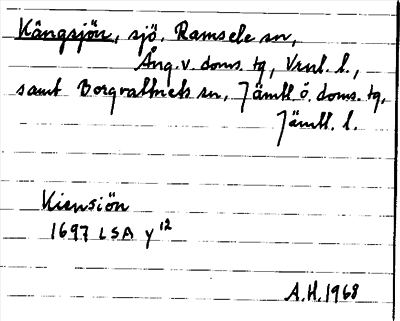 Kängsjön, sjö, Ramsele sn,
Ång. v. doms. tg, Vrnl. l.,
samt Borgvattnets sn, Jämtl. ö. doms. tg,
Jämtl. l.
Kiensiön
1697 LSA y 12
A.H. 1968